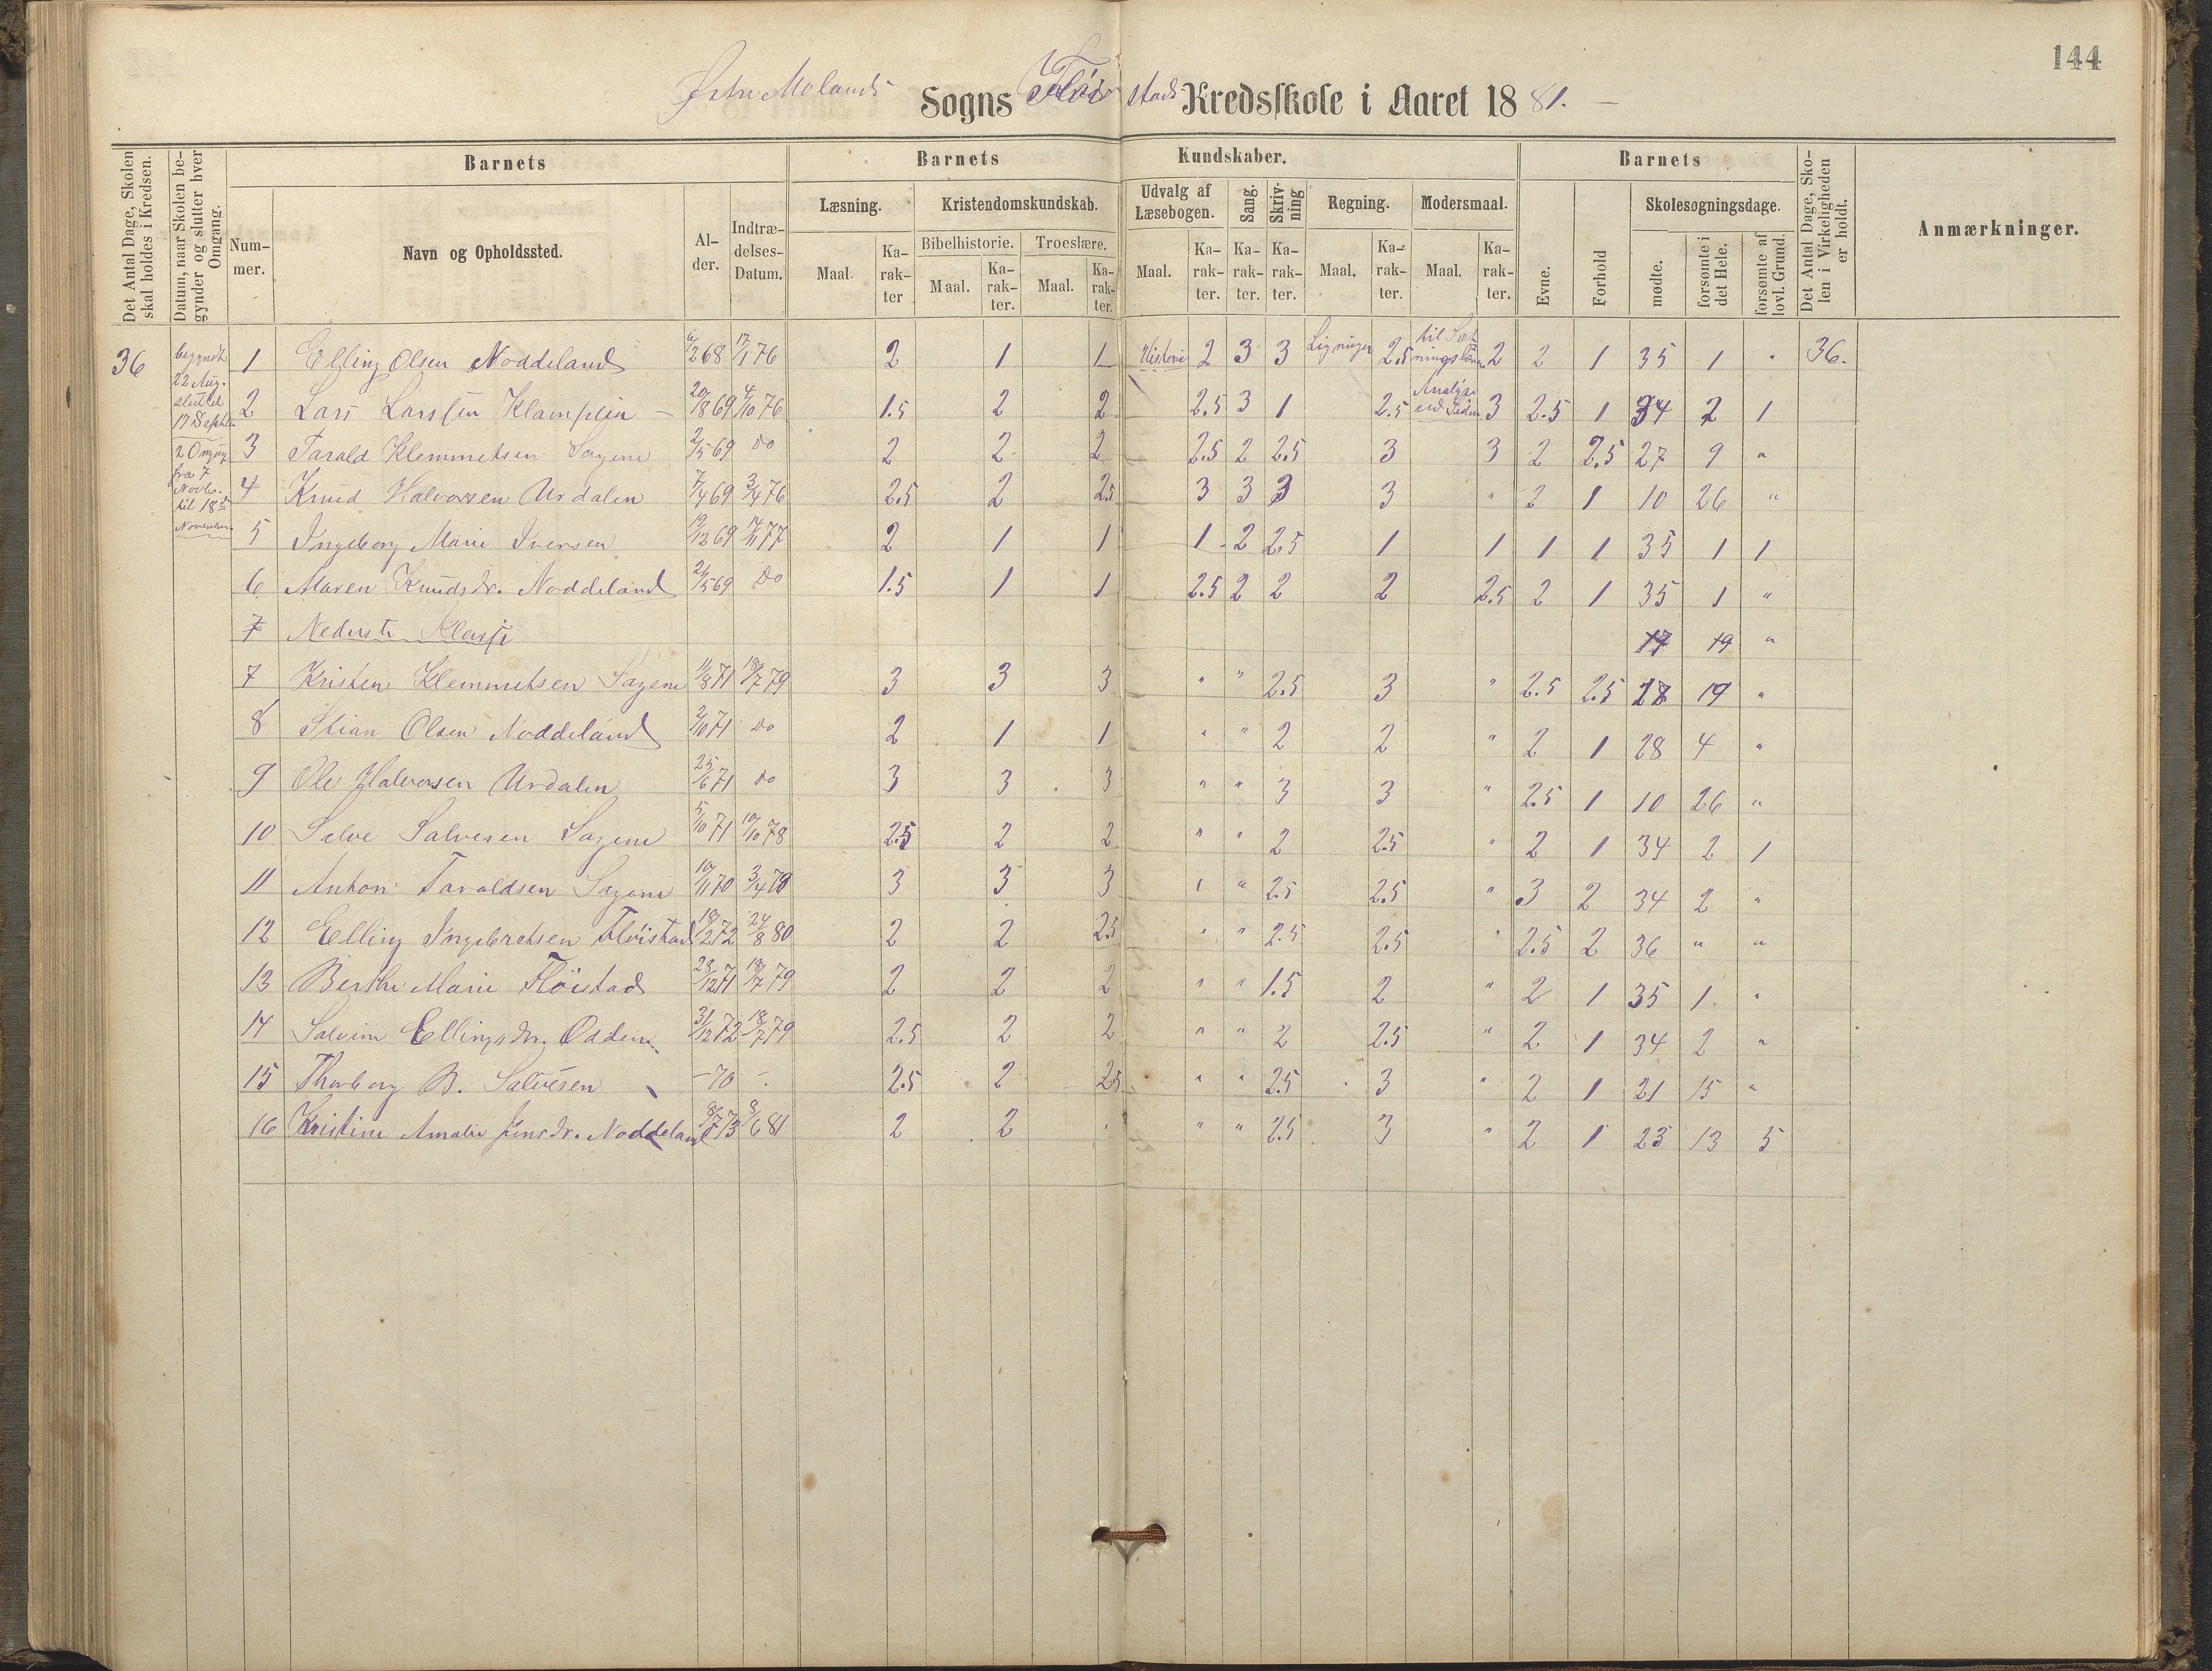 144
Østre Molands Sogns Flöistads Kredsskole i Aaret 1881. –
Det Antal Dage, Skolen skal holdes i Kredsen.
Datum, naar Skolen begynder og slutter hver Omgang.
Barnets
Nummer.
Navn og Opholdssted.
Alder.
Indtrædelses-Datum.
Barnets Kundskaber.
Læsning.
Maal. Karakter
Kristendomskundskab.
Bibelhistorie.
Maal. Karakter.
Troeslære.
Maal. Karakter.
Udvalg af Læsebogen.
Maal. Karakter.
Sang.
Karakter.
Skrivning
Karakter.
Regning.
Maal. Karakter.
Modersmaal.
Maal. Karakter.
Barnets
Evne.
Forhold
Skolesøgningsdage.
mødte.
forsømte i det Hele.
forsømte af lovl. Grund.
Det Antal Dage, Skolen i Virkeligheden er holdt.
Anmærkninger.
36
begyndt
22 Aug.
sluttet
17 Septbr.
2 Omgng
fra 7
Novbr.
til 18de
November.
1 Elling Olsen Noddeland 6/2 68 17/1 76 2 1 1 Historie 2 3 3 Ligninger 2.5 til Sætningslære 2 2 1 35 1 " 36.
2 Lars Larssen Klamplen – 20/8 69 4/10 76 1.5 2 2 2.5 3 1 2.5 Analyse 3 2.5 1 34 2 1
3 Tarald Klemmetsen Sagene 2/5 69 do 2 2 2 2.5 2 2.5 3 3 2 2.5 27 9 "
4 Knud Halvorsen Urdalen 7/4 69 3/4 76 2.5 2 2.5 3 3 3 3 " 2 1 10 26 "
5 Ingeborg Marie Iversen 19/12 69 14/11 77 2 1 1 1 2 2.5 1 1 1 1 35 1 1
6 Maren Knudsdr. Noddeland 24/5 69 Do 1.5 1 1 2.5 2 2 2 2.5 2 1 35 1 "
7 Nederste Klasse 17 19 "
7 Kristen Klemmetsen Sagene 11/8 71 18/7 79 3 3 3 " " 2.5 3 " 2.5 2.5 18 19 "
8 Stian Olsen Noddeland 2/10 71 do 2 1 1 " " 2 2 " 2 1 28 4 "
9 Ole Halvorsen Urdalen 25/6 71 do 3 3 3 " " 3 3 " 2.5 1 10 26 "
10 Salve Salvesen Sagene 5/10 71 10/10 78 2.5 2 2 " " 2 2.5 " 2 1 34 2 1
11 Anton Taraldsen Sagene 10/11 70 3/4 79 3 3 3 " " 2.5 2.5 " 3 2 34 2 "
12 Elling Ingebretsen Flöistad 18/2 72 24/8 80 2 2 2.5 " " 2.5 2.5 " 2.5 2 36 " "
13 Berthe Marie Flöistad 28/12 71 18/7 79 2 2 2 " " 1.5 2 " 2 1 35 1 "
14 Salvine Ellingsdr. Odden 31/12 72 18/7 79 2.5 2 2 " " 2 2.5 " 2 1 34 2 "
15 Thorborg B. Salvesen – 70 – 2.5 2 2.5 " " 2.5 3 " 2 1 21 15 "
16 Kristine Amalie Jensdr. Noddeland 8/7 73 8/6 81 2 2 " " " 2.5 3 " 2 1 23 13 5